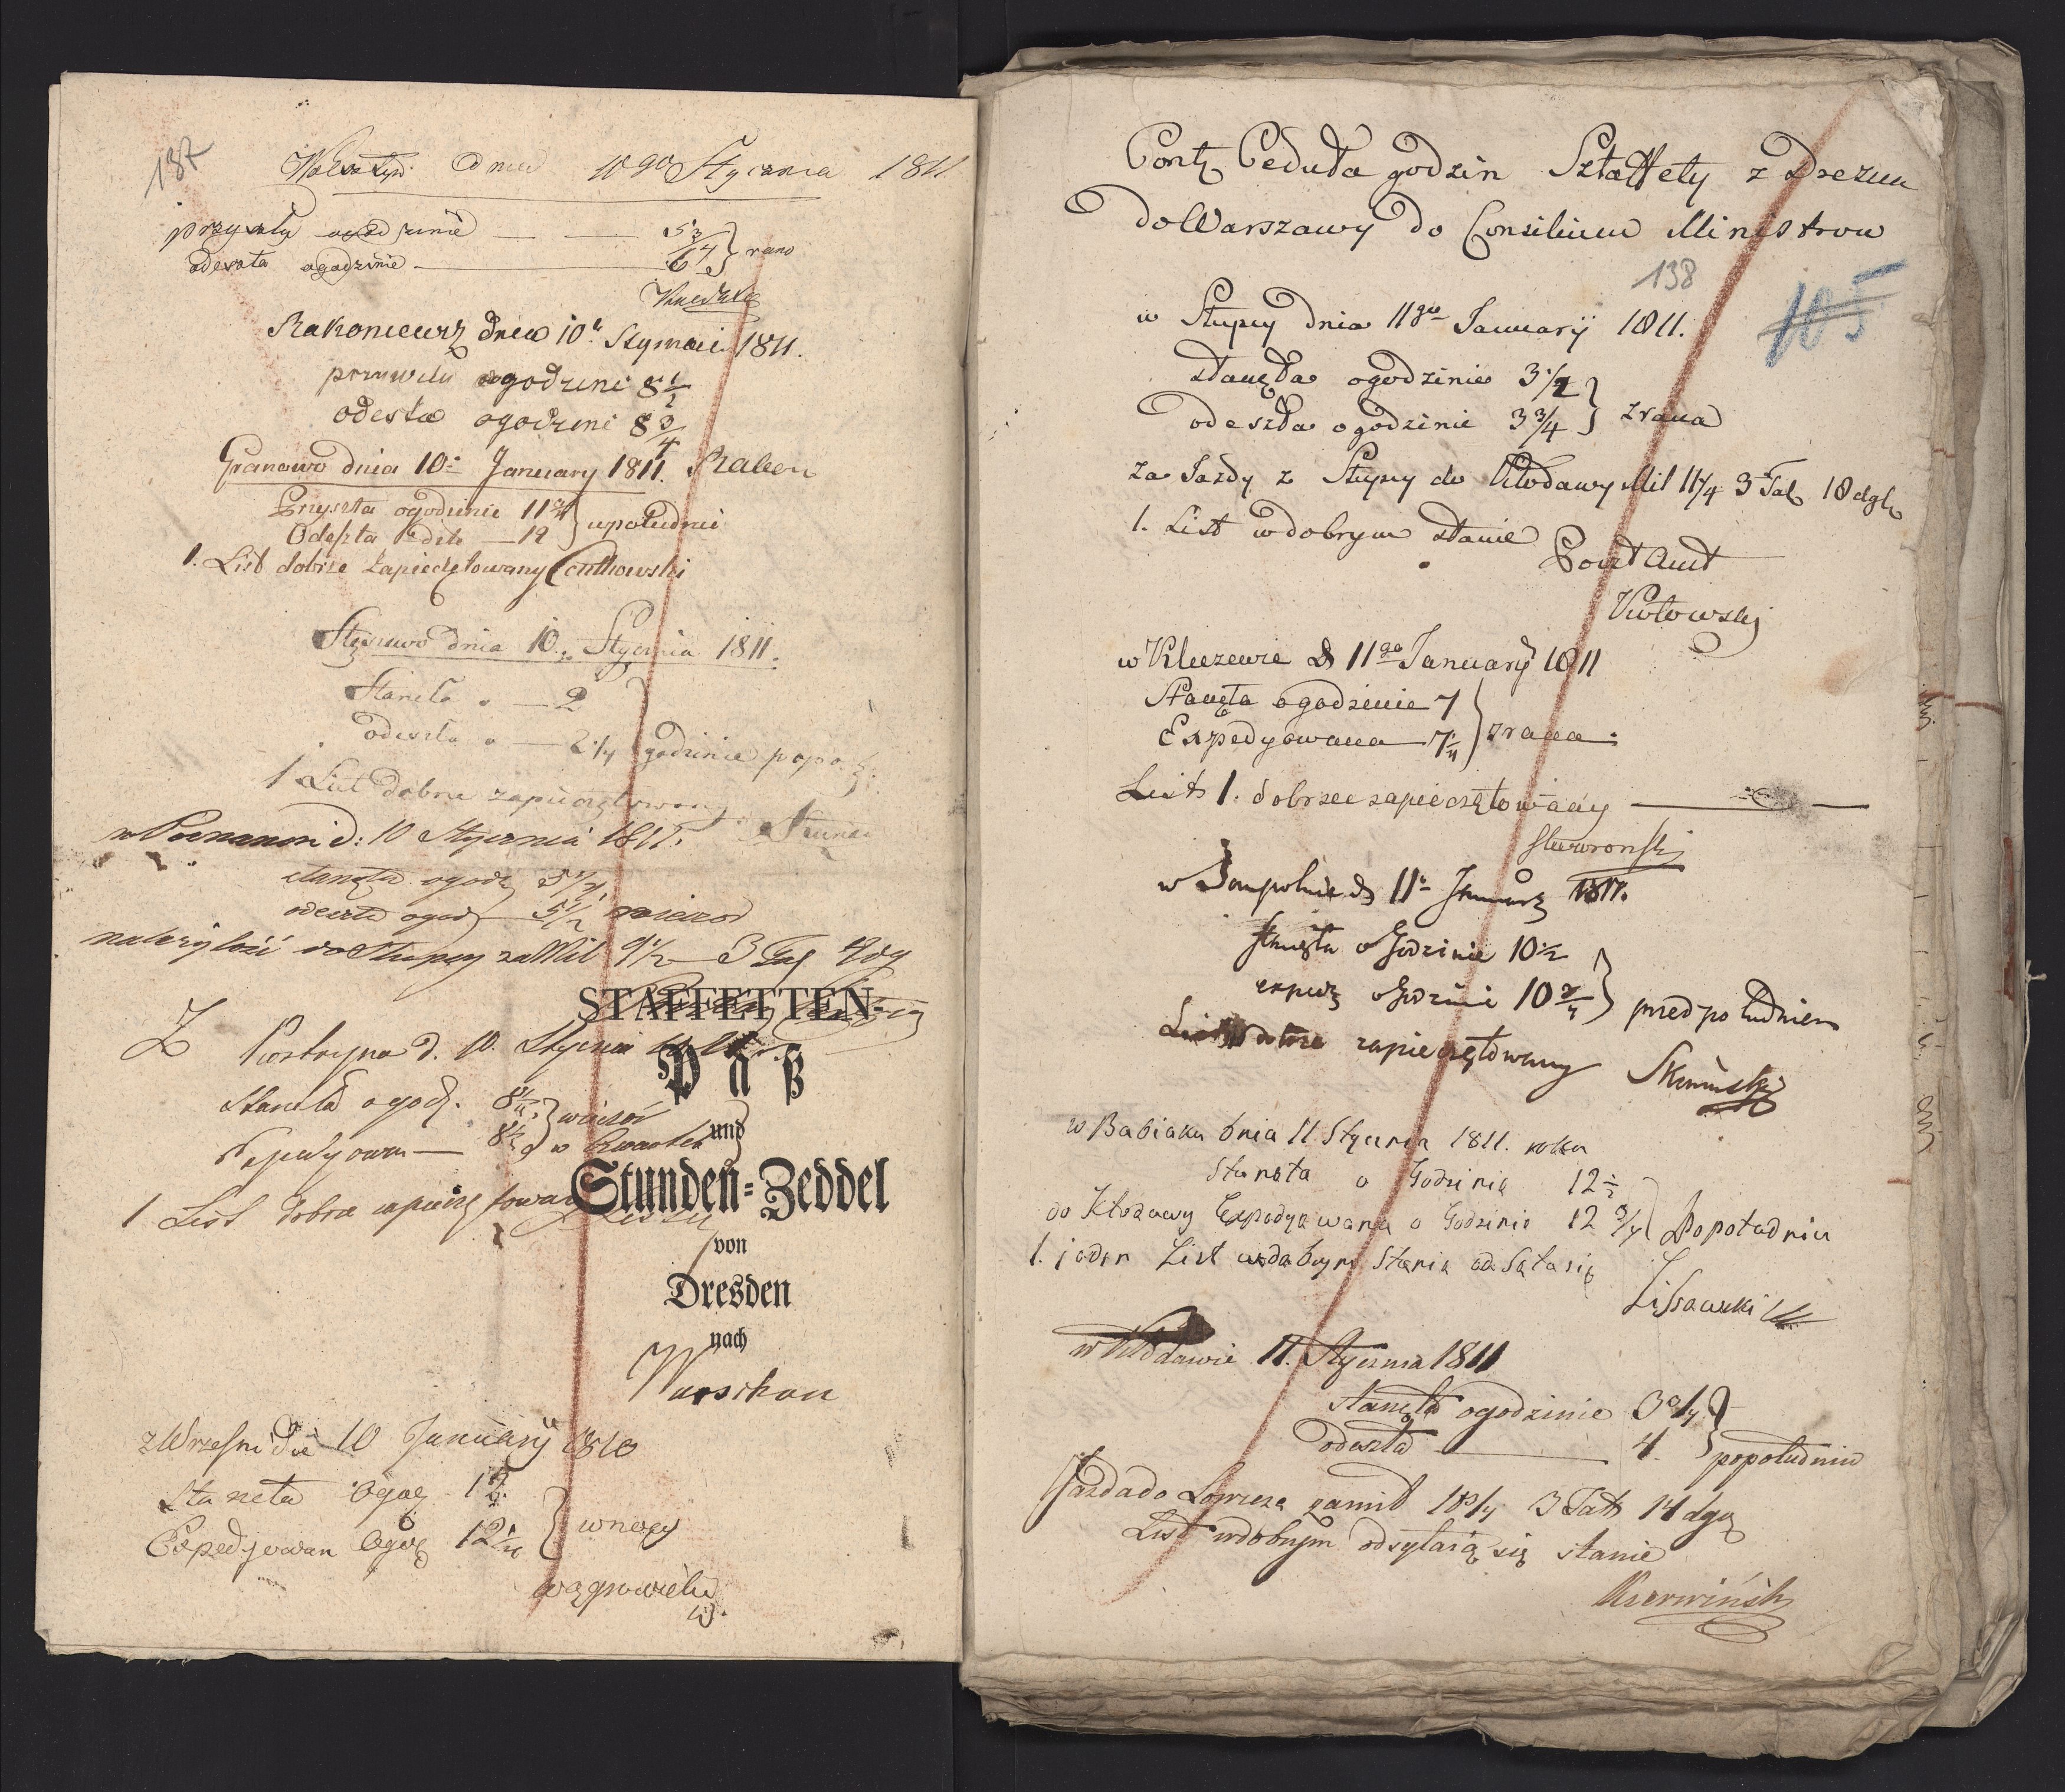 137
Wolsztyn Dnia 10go Stycznia 1811
przyszły ogodzinie — — 5 3/4 } rano
odeszła ogodzinie — 6 1/4
Rakoniewiz dnia 10o 1811.
ogodzini 8 1/2
odesła ogodzini 8 3/4
Granowo dnia 10o January 1811. Raben
Przyszła ogodzinie 11 3/4 } upołudnie
Odeszła dito — 12
1. List dobrze zapieczętowany
Stęszewo dnia 10. Stycznia 1811.
Stanęła o — 2 }
odeszła o — 2 1/4 godzinie popoł:
1 List dobrze zapieczętowany
w Poznaniu d: 10 Stycznia 1811.
stanęła ogodz 5 1/4
odeszła ogodz 5 1/2 wieczor
należytość do Słupcy za Mil 9 1/2 — 3 Tal
STAFFETTEN-
Z Kostrzyna d. 10. Stycznia
Paß
Stanęła ogodz. 8 1/4 } wieczór
und
Expedyowa — 8 1/2 w
Stunden-Zeddel
1 List dobrze zapieczętowany
von
Dresden
nach
Warschau
z Wrzesni die 10 January 1810
Staneła Ogog 12.
Expedjowan Ogog 12 1/4 } wnocy
Contz Ceduła godzin Sztaffety z Drezna
do Warszawy do Consilium Ministrow
138
105
w Słupcy dnia 11go Januarÿ 1811.
stanęła ogodzinie 3 1/2 } zrana
odeszła ogodzinie 3 3/4
za Jazdy z Słupcy do Kłodawy Mil 11 1/4 3 Tal 18 dgl
1. List wdobrym stanie
Post Amt
Kutowski
w Kleczewie D 11go Januarÿ 1811
Stanęła ogodzinie 7 } zrana.
Expedyowana — 7 1/4
List 1. dobrze zapieczętowany —
Skworonski
w Sompolnie D 11o 1811.
stanęła o Godzinie 10 1/2
exped o Godzinie 10 3/4 } przed południem
List dobrze zapieczętowany
w Babiaku dnia 11 Stycznia 1811. roku
Stanęła o Godzinie 12 1/2
do Kłodawy Expedyowana o Godzinie 12 3/4 } Popołudniu
1. jeden List wdobrym Stanie odSęła się
Lissawski
w Kłodawie 11. Stycznia 1811
stanęła ogodzinie 3 3/4 }
odeszła — 4. popołudniu
Jazda do Łowicza zamil 10 3/4 3 Tal 14 dgr
List wdobrym odsyłaią się stanie